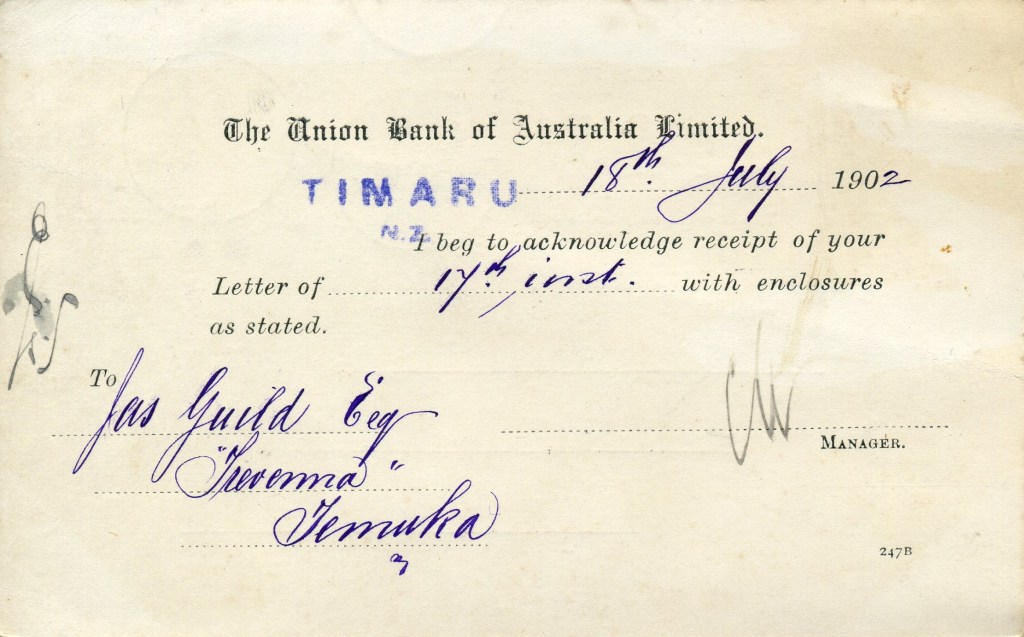 The Union Bank of Australia Limited.
TIMARU 18th July 1902
N.Z.
I beg to acknowledge receipt of your
Letter of 17th inst. with enclosures
as stated.
To
Jas Guild Esq
MANAGER.
"Trevenna"
Temuka
247B